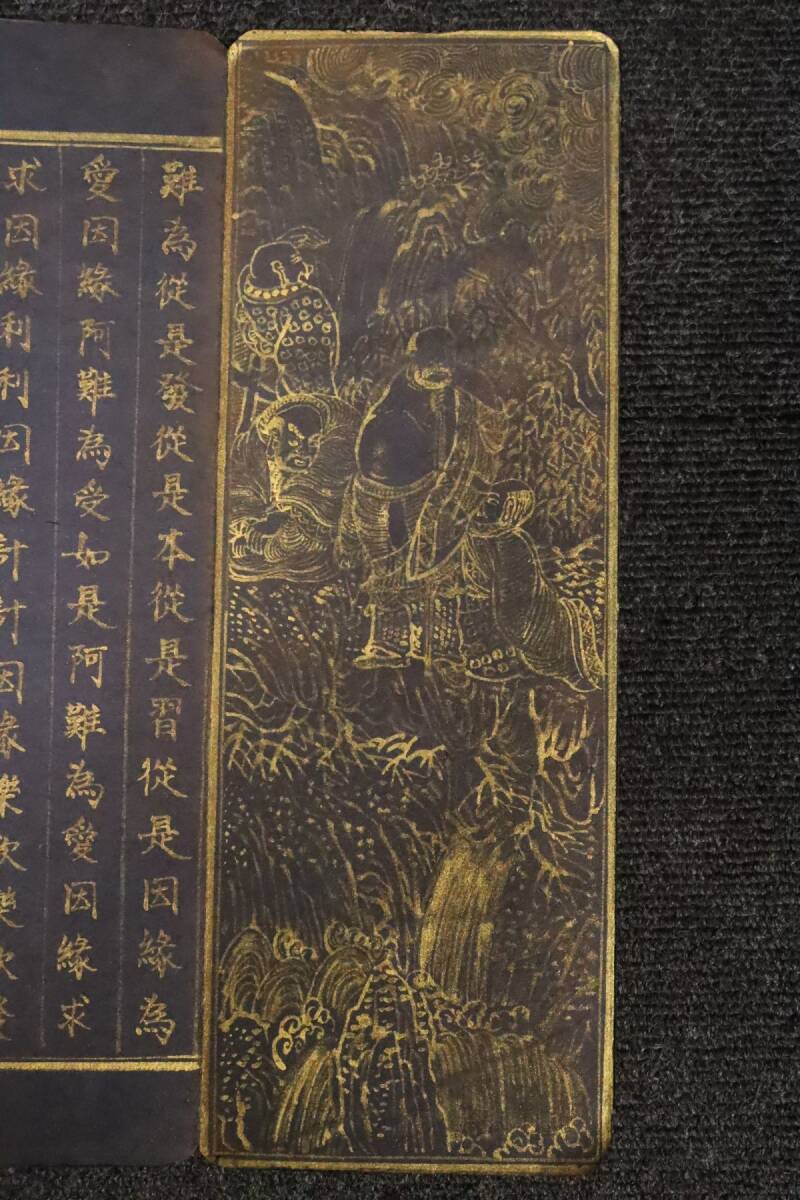 難為從是發從是本從是習從是因緣為
愛因緣阿難為受如是阿難為愛因緣求
求因緣利利因緣計計因緣樂欲樂欲發